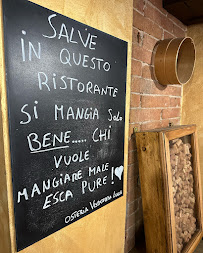 SALVE
IN QUESTO
RISTORANTE
SI MANGIA SOLO
BENE..... CHI
VUOLE
MANGIARE MALE
ESCA PURE!
OSTERIA